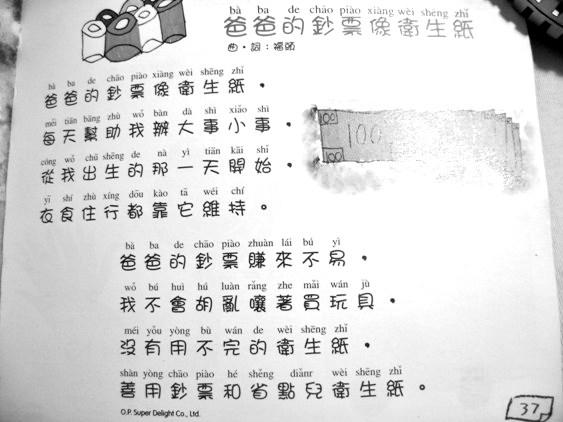 bà ba de chāo piào xiàng wèi shēng zhǐ
爸爸的鈔票像衛生紙
曲・詞：福頭
bà ba de chāo piào xiàng wèi shēng zhǐ
爸爸的鈔票像衛生紙，
měi tiān bāng zhù wǒ bàn dà shì xiǎo shì
每天幫助我辦大事小事，
cóng wǒ chū shēng de nà yì tiān kāi shǐ
從我出生的那一天開始，
yī shí zhù xíng dōu kào tā wéi chí
衣食住行都靠它維持。
100
100
100
bà ba de chāo piào zhuàn lái bú yì
爸爸的鈔票賺來不易，
wǒ bú huì hú luàn rǎng zhe mǎi wán jù
我不會胡亂嚷著買玩具，
méi yǒu yòng bù wán de wèi shēng zhǐ
沒有用不完的衛生紙，
shàn yòng chāo piào hé shěng diǎnr wèi shēng zhǐ
善用鈔票和省點兒衛生紙。
O.P. Super Delight Co., Ltd.
37